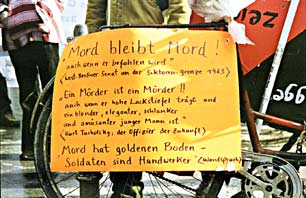 Mord bleibt Mord !
auch wenn er befohlen wird"
(West-Berliner Senat an der Sektorengrenze 1963)
„Ein Mörder ist ein Mörder !!
auch wenn er hohe Lackstiefel trägt und
ein blonder, eleganter, schlanker
und amüsanter junger Mann ist"
(Kurt Tucholsky, der Offizier der Zukunft)
Mord hat goldenen Boden –
Soldaten sind Handwerker"